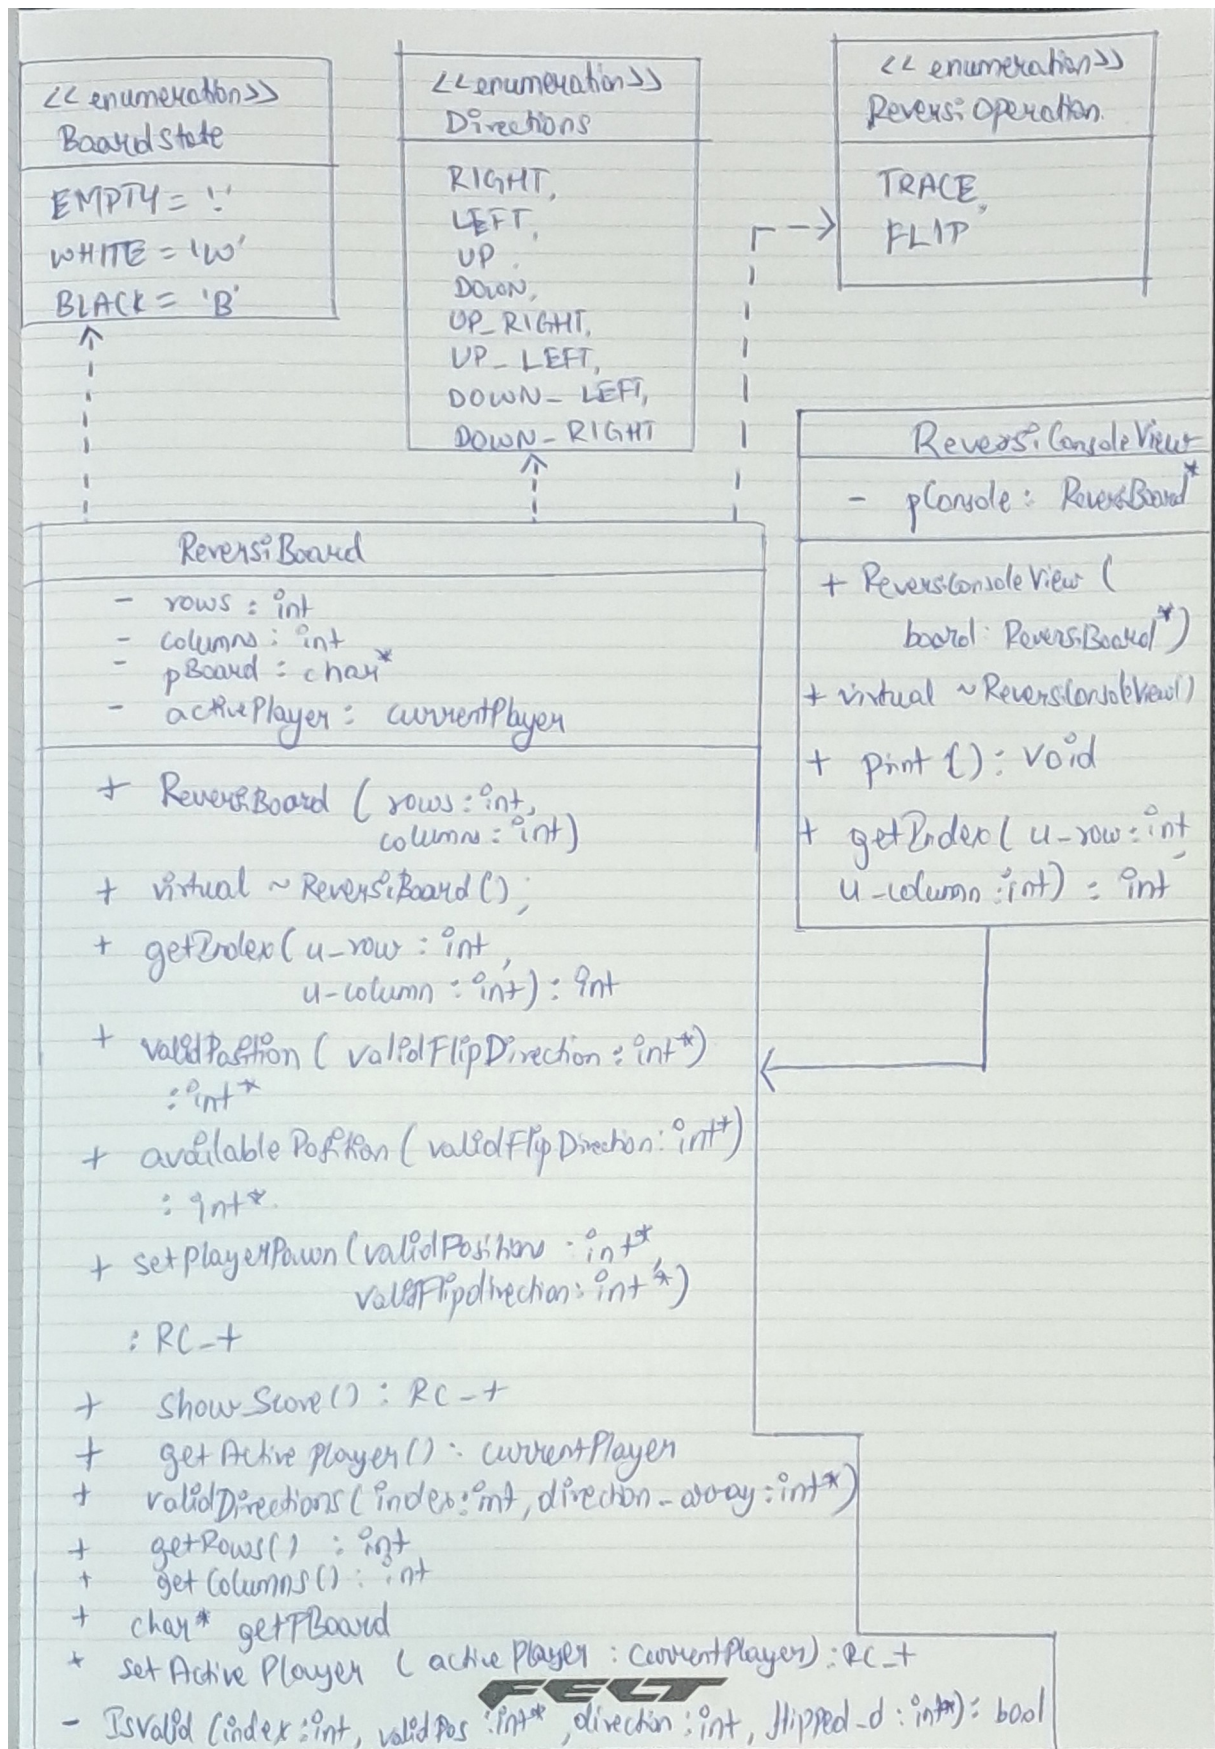 <<enumeration>>
BoardState
EMPTY = '.'
WHITE = 'W'
BLACK = 'B'
<<enumeration>>
Directions
RIGHT,
LEFT,
UP,
DOWN,
UP_RIGHT,
UP_LEFT,
DOWN_LEFT,
DOWN_RIGHT
<<enumeration>>
ReversiOperation.
TRACE,
FLIP
ReversiConsoleView
- pConsole : ReversiBoard*
+ ReversiConsoleView (
board : ReversiBoard*)
+ virtual ~ReversiConsoleView()
+ print () : void
+ getIndex( u-row : int,
u-column : int) : int
ReversiBoard
- rows : int
- columns : int
- pBoard : char*
- activePlayer : currentPlayer
+ ReversiBoard ( rows : int,
columns : int)
+ virtual ~ReversiBoard();
+ getIndex( u-row : int,
u-column : int) : int
+ validPosition ( validFlipDirection : int*)
: int*
+ availablePosition ( validFlipDirection : int*)
: int*.
+ setPlayerPawn (validPositions : int*,
validFlipdirection : int*)
: RC_t
+ show_Score() : RC_t
+ getActive player() : currentPlayer
+ validDirections ( index : int, direction_array : int*)
+ getRows() : int
+ getColumns() : int
+ char* getPBoard
+ setActive Player ( active player : currentPlayer) : RC_t
FELT
- IsValid (index : int, validPos : int*, direction : int, flipped_d : int*) : bool